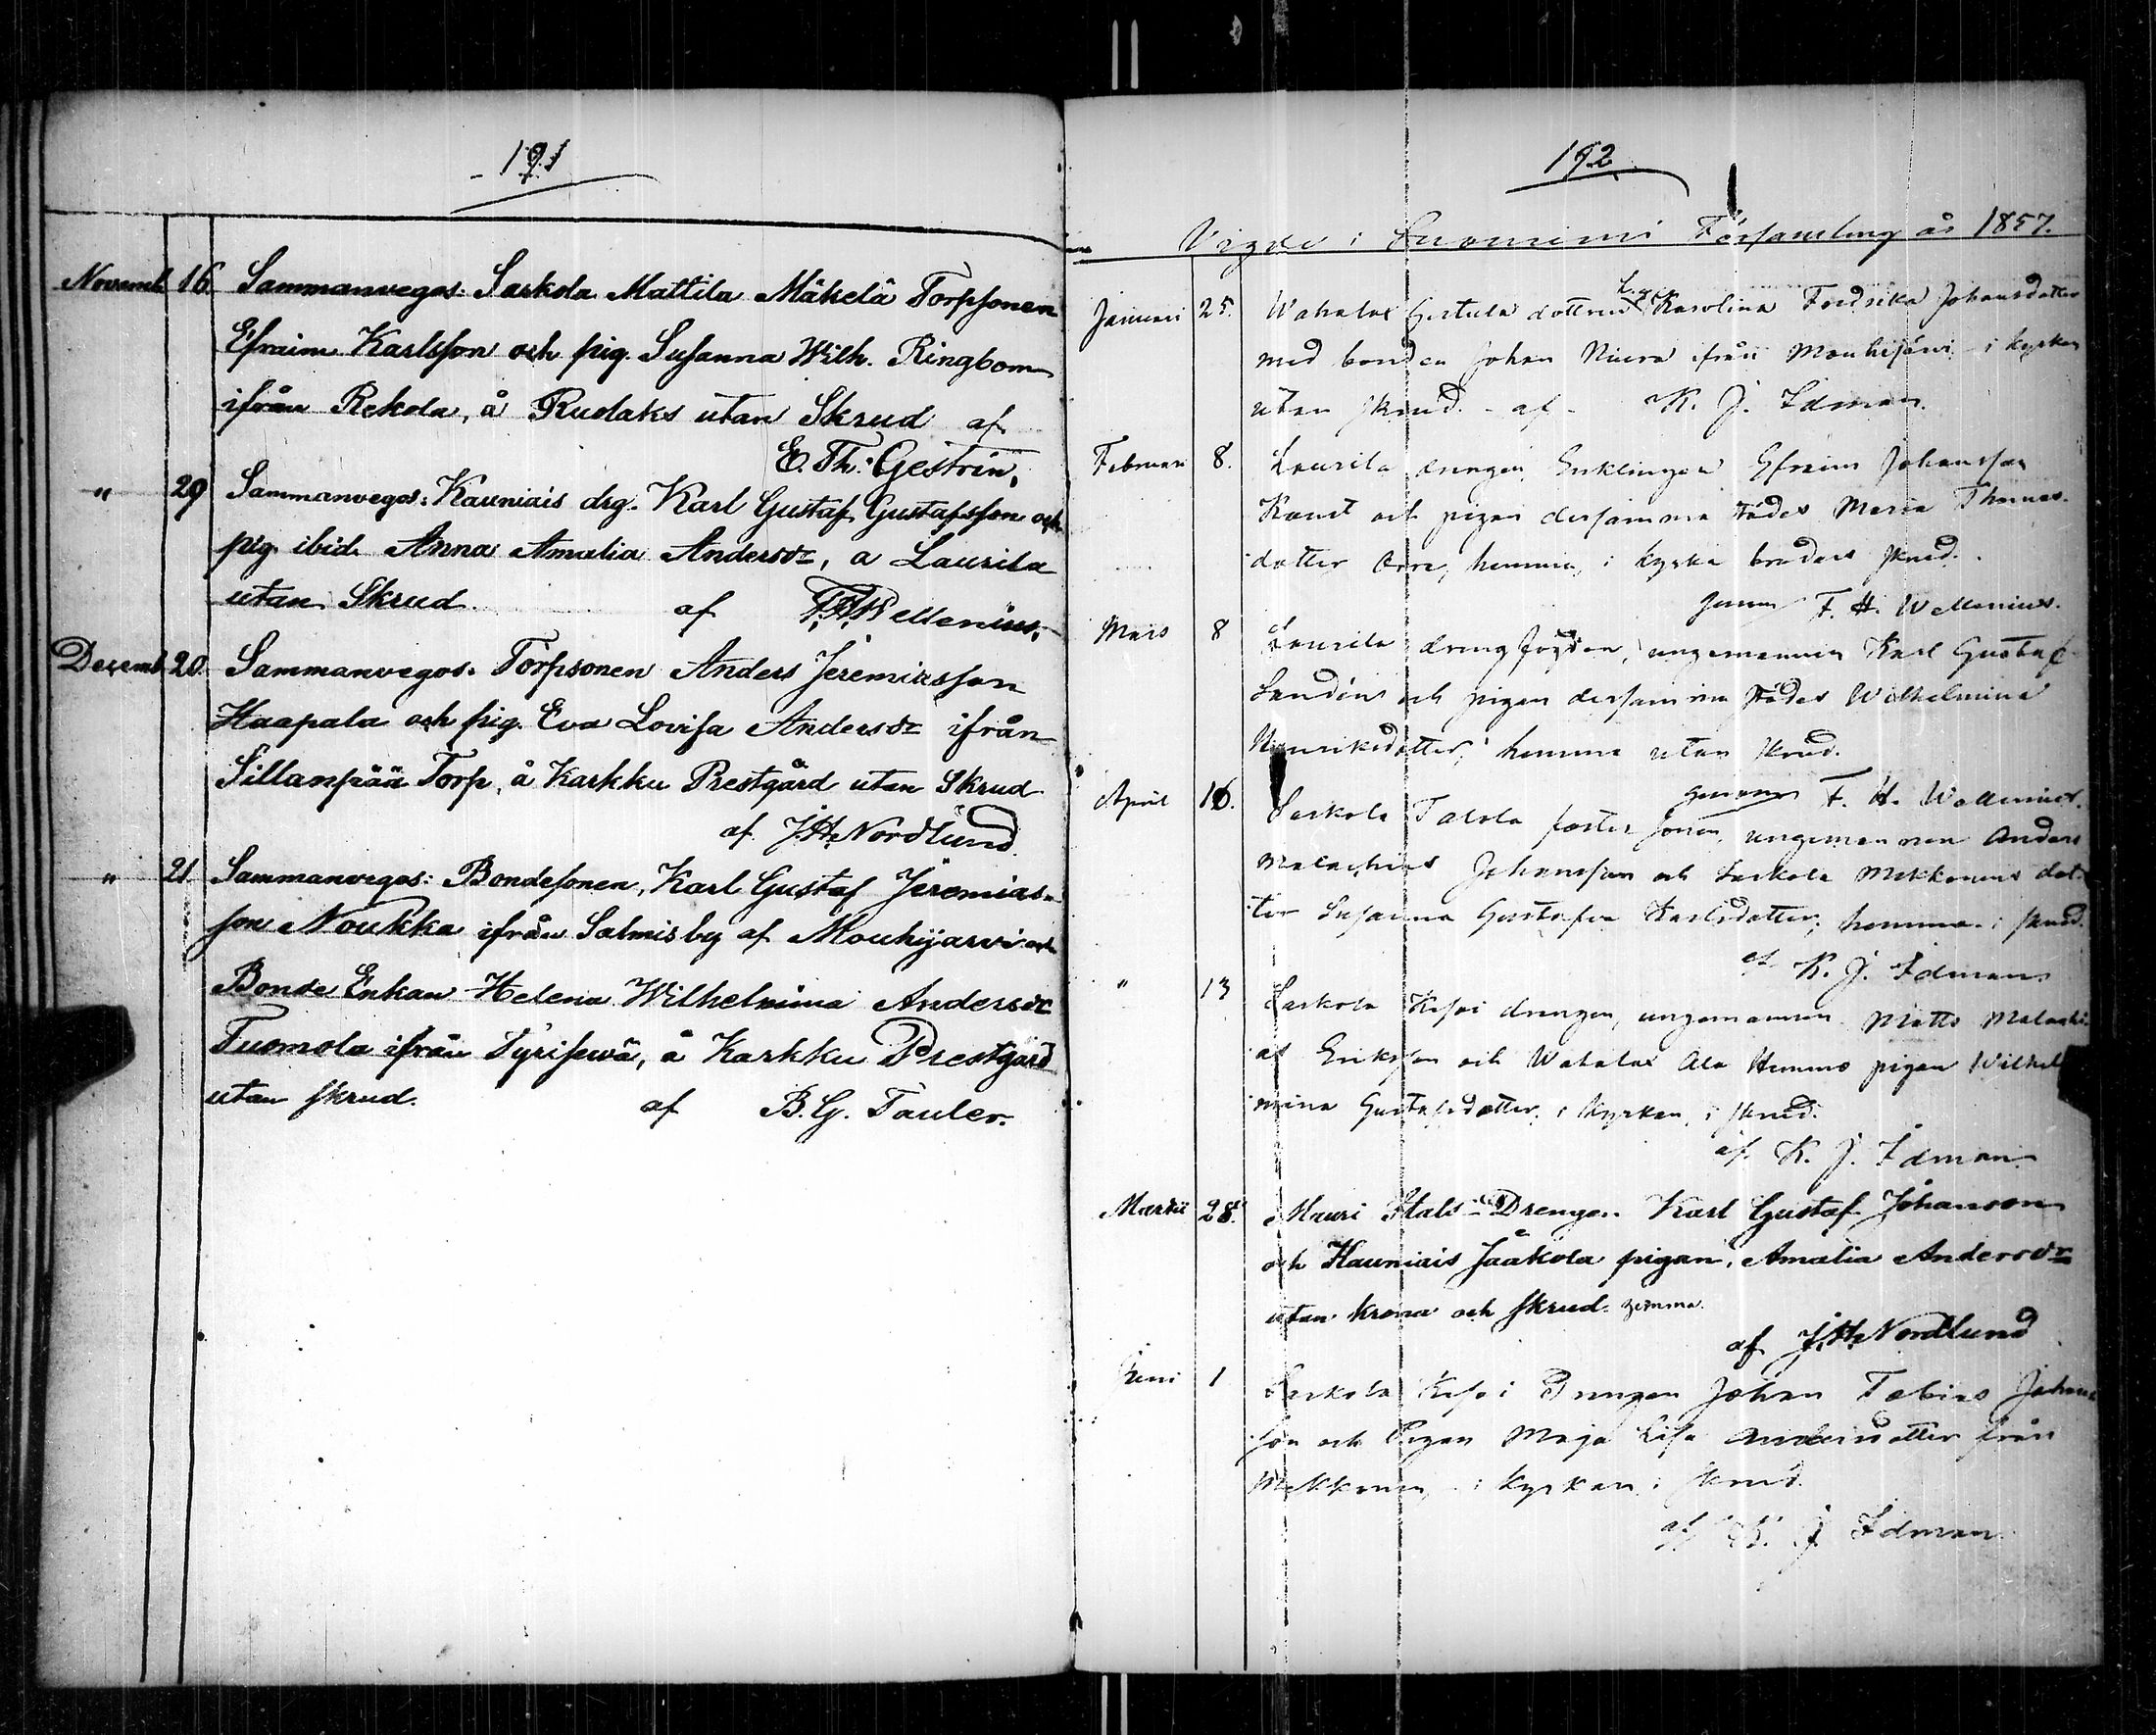 191
Novemb. 16. Sammanvegos: Sarkola Mattila Mäkelä Torpsonen
Efraim Karlsson och pig. Susanna Wilh. Ringbom
ifrån Rekola, å Rudaks utan Skrud af
E. Th. Gestrin.
" 29 Sammanvegos: Kauniais drg. Karl Gustaf Gustafsson och
pig. ibid. Anna Amalia Andersdr, a Laurila
utan Skrud af F. H. Wellenius.
Decemb. 20. Sammanvegos: Torpsonen Anders Jeremiasson
Haapala och pig. Eva Lovisa Andersdr ifrån
Sillanpää Torp, å Karkku Prestgård utan Skrud
af J. H. Nordlund.
" 21. Sammanvegos: Bondesonen, Karl Gustaf Jeremias-
son Noukka ifrån Salmis by af Mouhijärvi och
Bonde Enkan Helena Wilhelmina Andersdr
Tuomola ifrån Tyriswä, å Karkku Prestgård
utan skrud. af B. G. Tauler.
192
Vigde i Suoniemi Församling år 1857.
Januari 25. Wahalax Gertula dottren Karolina Fredrika Johansdotter
med bonden Johan Niura ifrån Mouhijärvi i kyrkan
utan skrud. af K. J. Idman.
Februari 8. Laurila drengen Enklingen Efraim Johansson
Kanut och pigan dersamma städes Maria Thomas-
dotter Orre, hemma, i kyrko bruders skrud.
genom F. H. Wellenius.
Mars 8 Laurila drengfogden, ungemannen Karl Gustaf
Landén och pigan dersamma städes Wilhelmina
Henriksdotter, hemma utan skrud.
genom F. H. Wellenius.
April 16. Sarkola Talola foster sonen, ungemannen Anders
Malachias Johansson och Sarkola Mekkonens dot-
ter Susanna Gustafva Karlsdotter; hemma i skrud.
af K. J. Idman.
" 13 Sarkola Keso i drengen, ungemannen Matts Malachi-
as Eriksson och Wahalax Ala Hemmo pigan Wilhel
mina Gustafsdotter, i kyrkan, i skrud.
af K. J. Idman.
Martii 28. Mauri Drengen Karl Gustaf Johansson
och Kauniais Jaakola pigan, Amalia Andersdr
utan krona och skrud. hemma.
af J. H. Nordlund
Juni 1 Sarkola Keso i Drengen Johan Tobias Johans
son och Pigan Maja Lisa Andersdotter från
Mekkonen, i kyrkan i skrud.
af K. J. Idman.